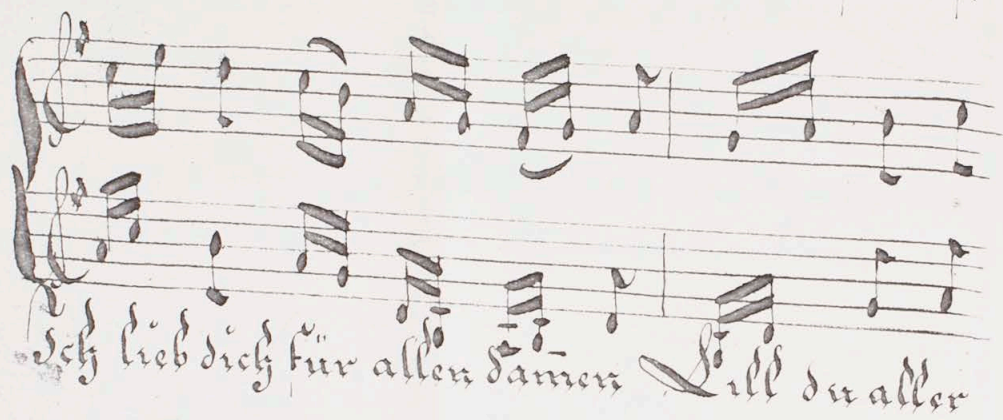 Ich lieb dich für allen damen Lill du aller